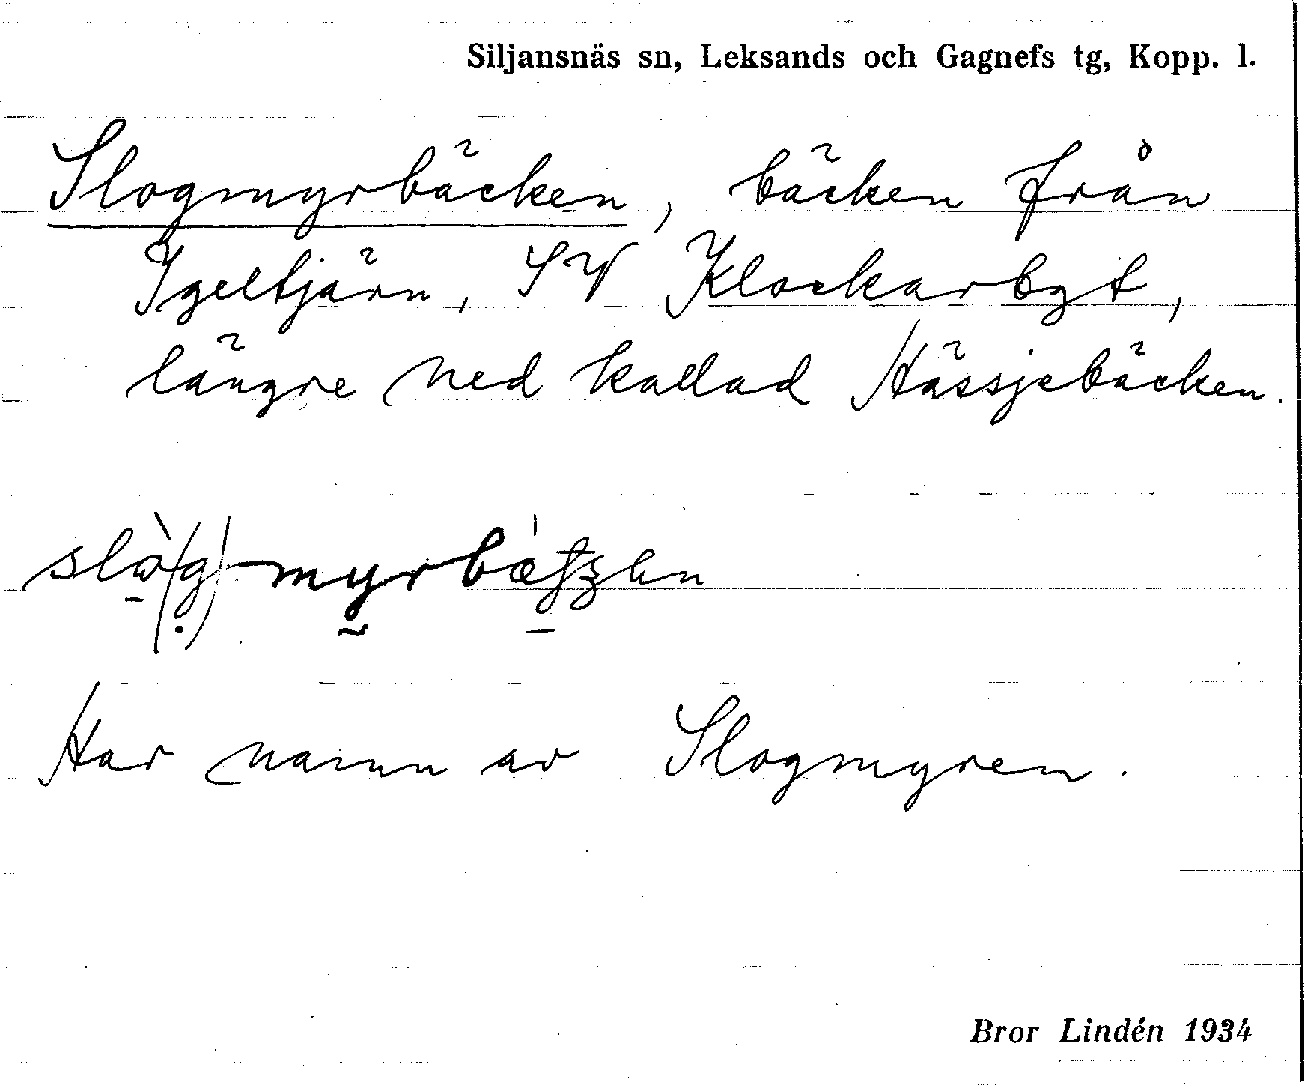 Siljansnäs sn, Leksands och Gagnefs tg, Kopp. l.
Slogmyrbäcken, bäcken från
Igeltjärn, SV Klockarbyt,
längre ned kallad Hässjebäcken.
Har namn av Slogmyren.
Bror Lindén 1934